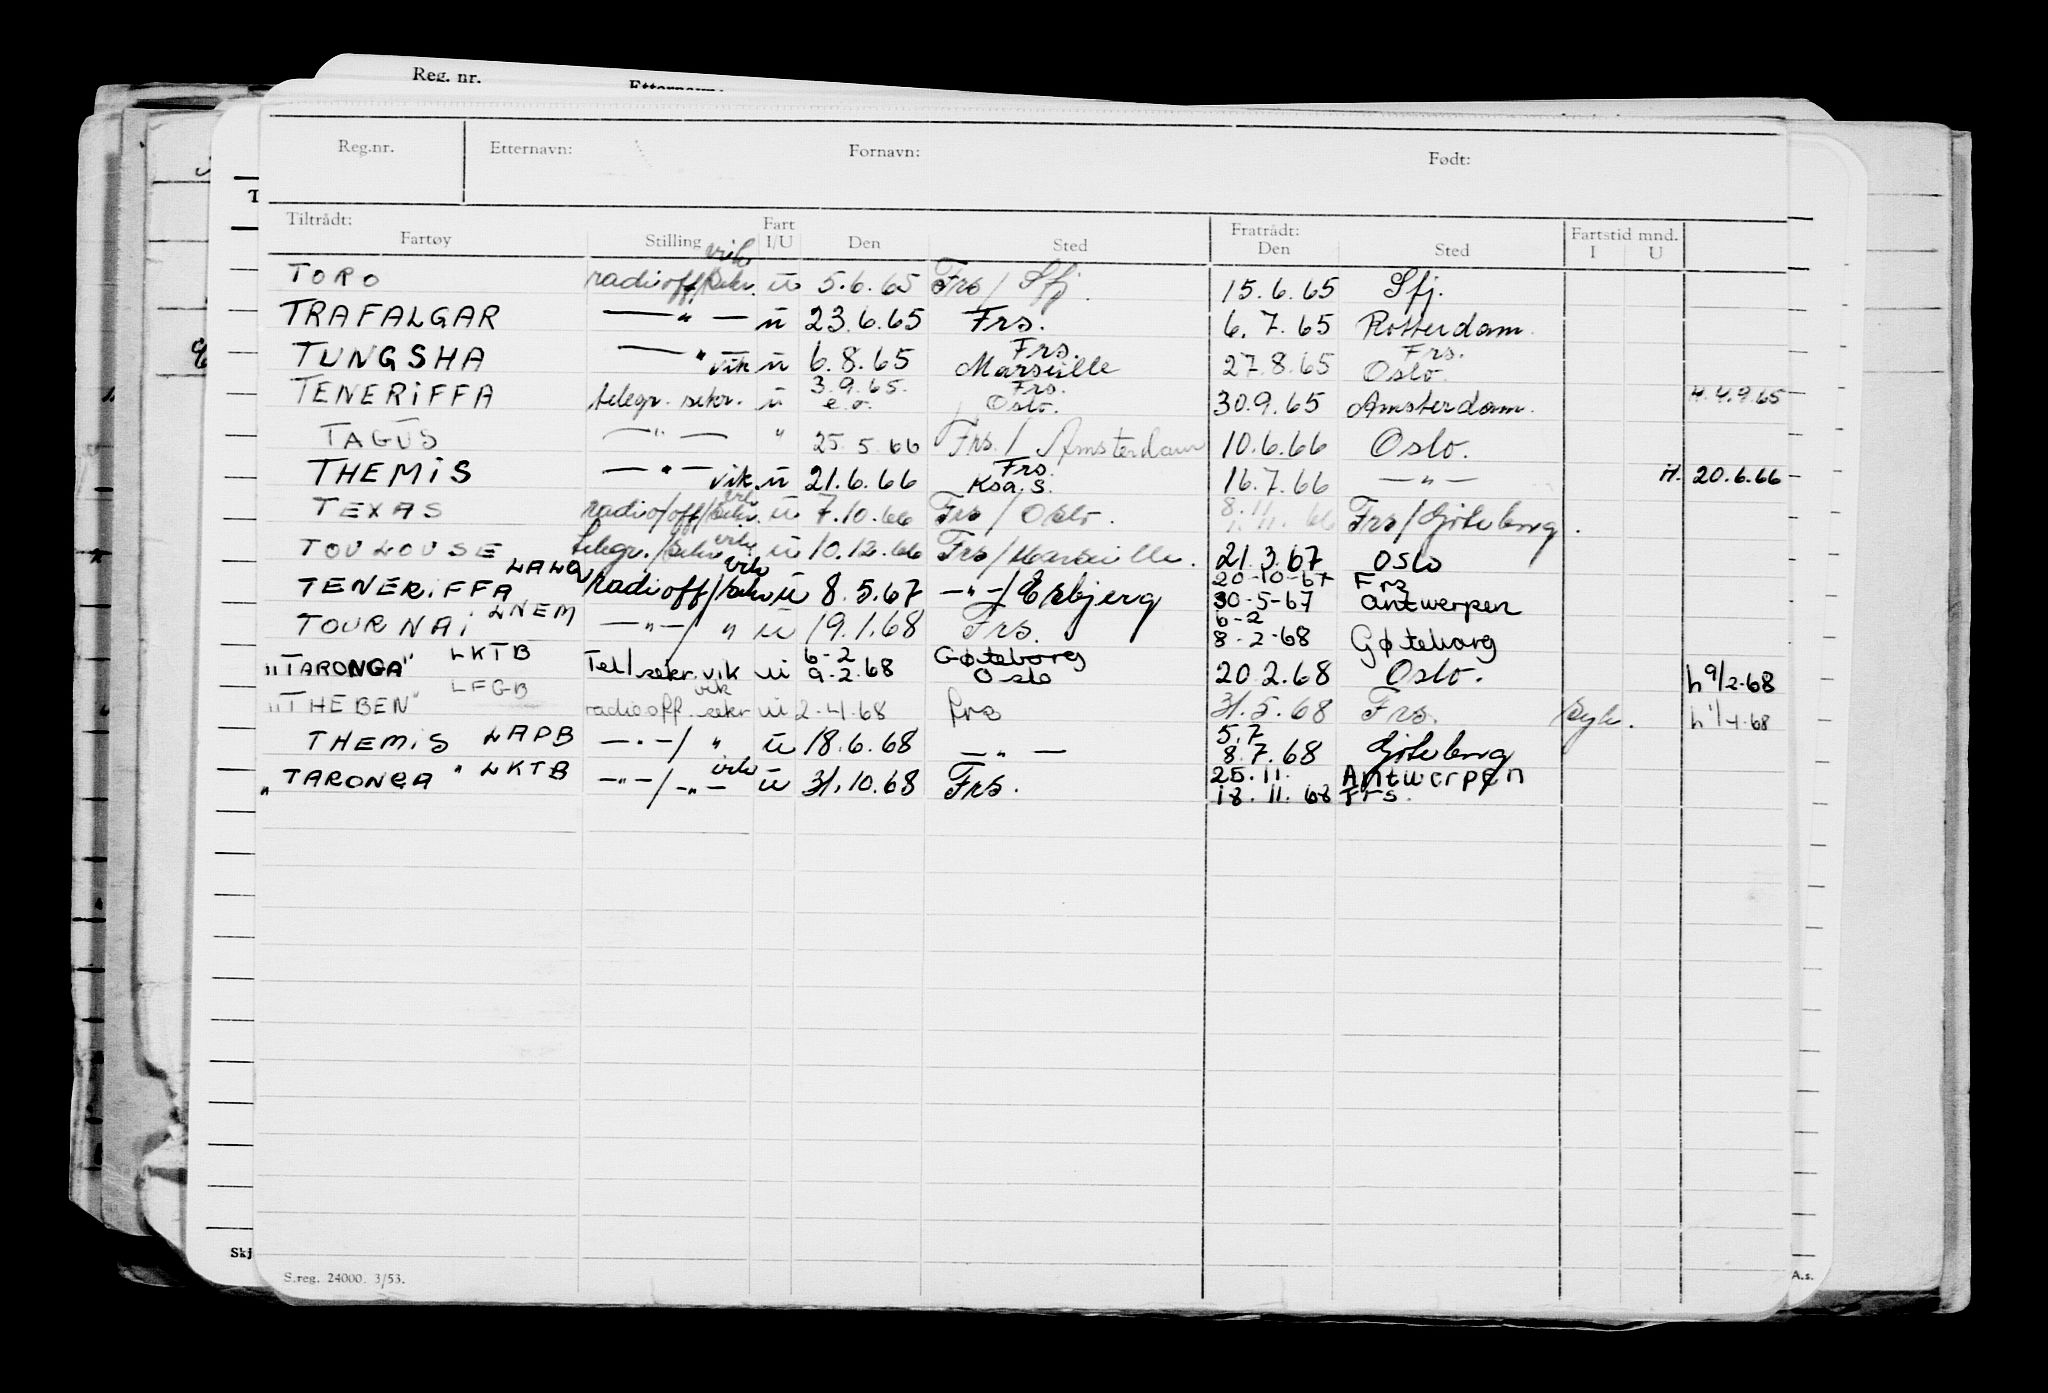 Reg. nr.
Etternavn:
Reg.nr. Etternavn: Fornavn: Født:
Tiltrådt: Fart Fratrådt: Fartstid mnd.
Fartøy Stilling I/U Den Sted Den Sted I U
TORO radiooff/sekr. vik u 5.6.65 Frs / Sfj. 15.6.65 Sfj.
TRAFALGAR — " — u 23.6.65 Frs. 6.7.65 Rotterdam.
TUNGSHA — " vik u 6.8.65 Frs. Marseille 27.8.65 Frs. Oslo.
TENERIFFA telegr. sekr. u 3.9.65. e.o. Frs. Oslo. 30.9.65 Amsterdam. 4.9.65
TAGUS — " — " 25.5.66 Frs. / Amsterdam 10.6.66 Oslo.
THEMIS — " — vik. u 21.6.66 Frs. Kba.S. 16.7.66 — " — H. 20.6.66
TEXAS radio/off/sekr. vik u 7.10.66 Frs / Oslo. 8.11.66 Frs / Göteborg.
TOULOUSE telegr./sekr vik u 10.12.66 Frs / Marseille. 21.3.67 Oslo
TENERIFFA LALQ radiooff/sekr vik u 8.5.67 — " — / Esbjerg 20-10-67 Frs 30-5-67 Antwerpen
TOURNAI LNEM — " — / " u 19.1.68 Frs. 6-2 8-2-68 Gøteborg
"TARONGA" LKTB Tel/sekr. vik u 6-2 9-2.68 Gøteborg Oslo 20.2.68 Oslo. h 9/2-68
"THEBEN" LFGB radiooff. sekr vik u 2-4.68 frs 31.5.68 Frs. Syk. h 1/4-68
THEMIS LAPB — " — / " u 18.6.68 — " — 5.7 8.7.68 Göteborg
"TARONGA" LKTB — " — / — " — vik u 31.10.68 Frs. 25.11. Antwerpen 18.11.68 Frs.
Skj
S.reg. 24000. 3/53.
A.s.